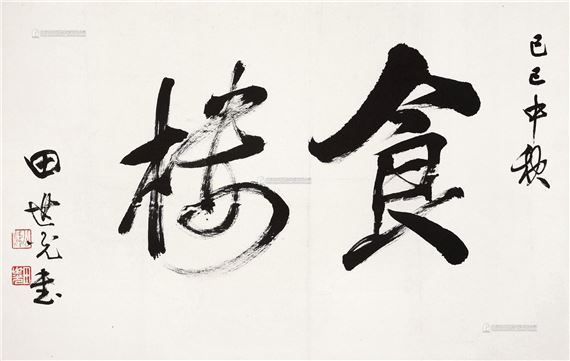 己巳中秋
食楼
田世光書